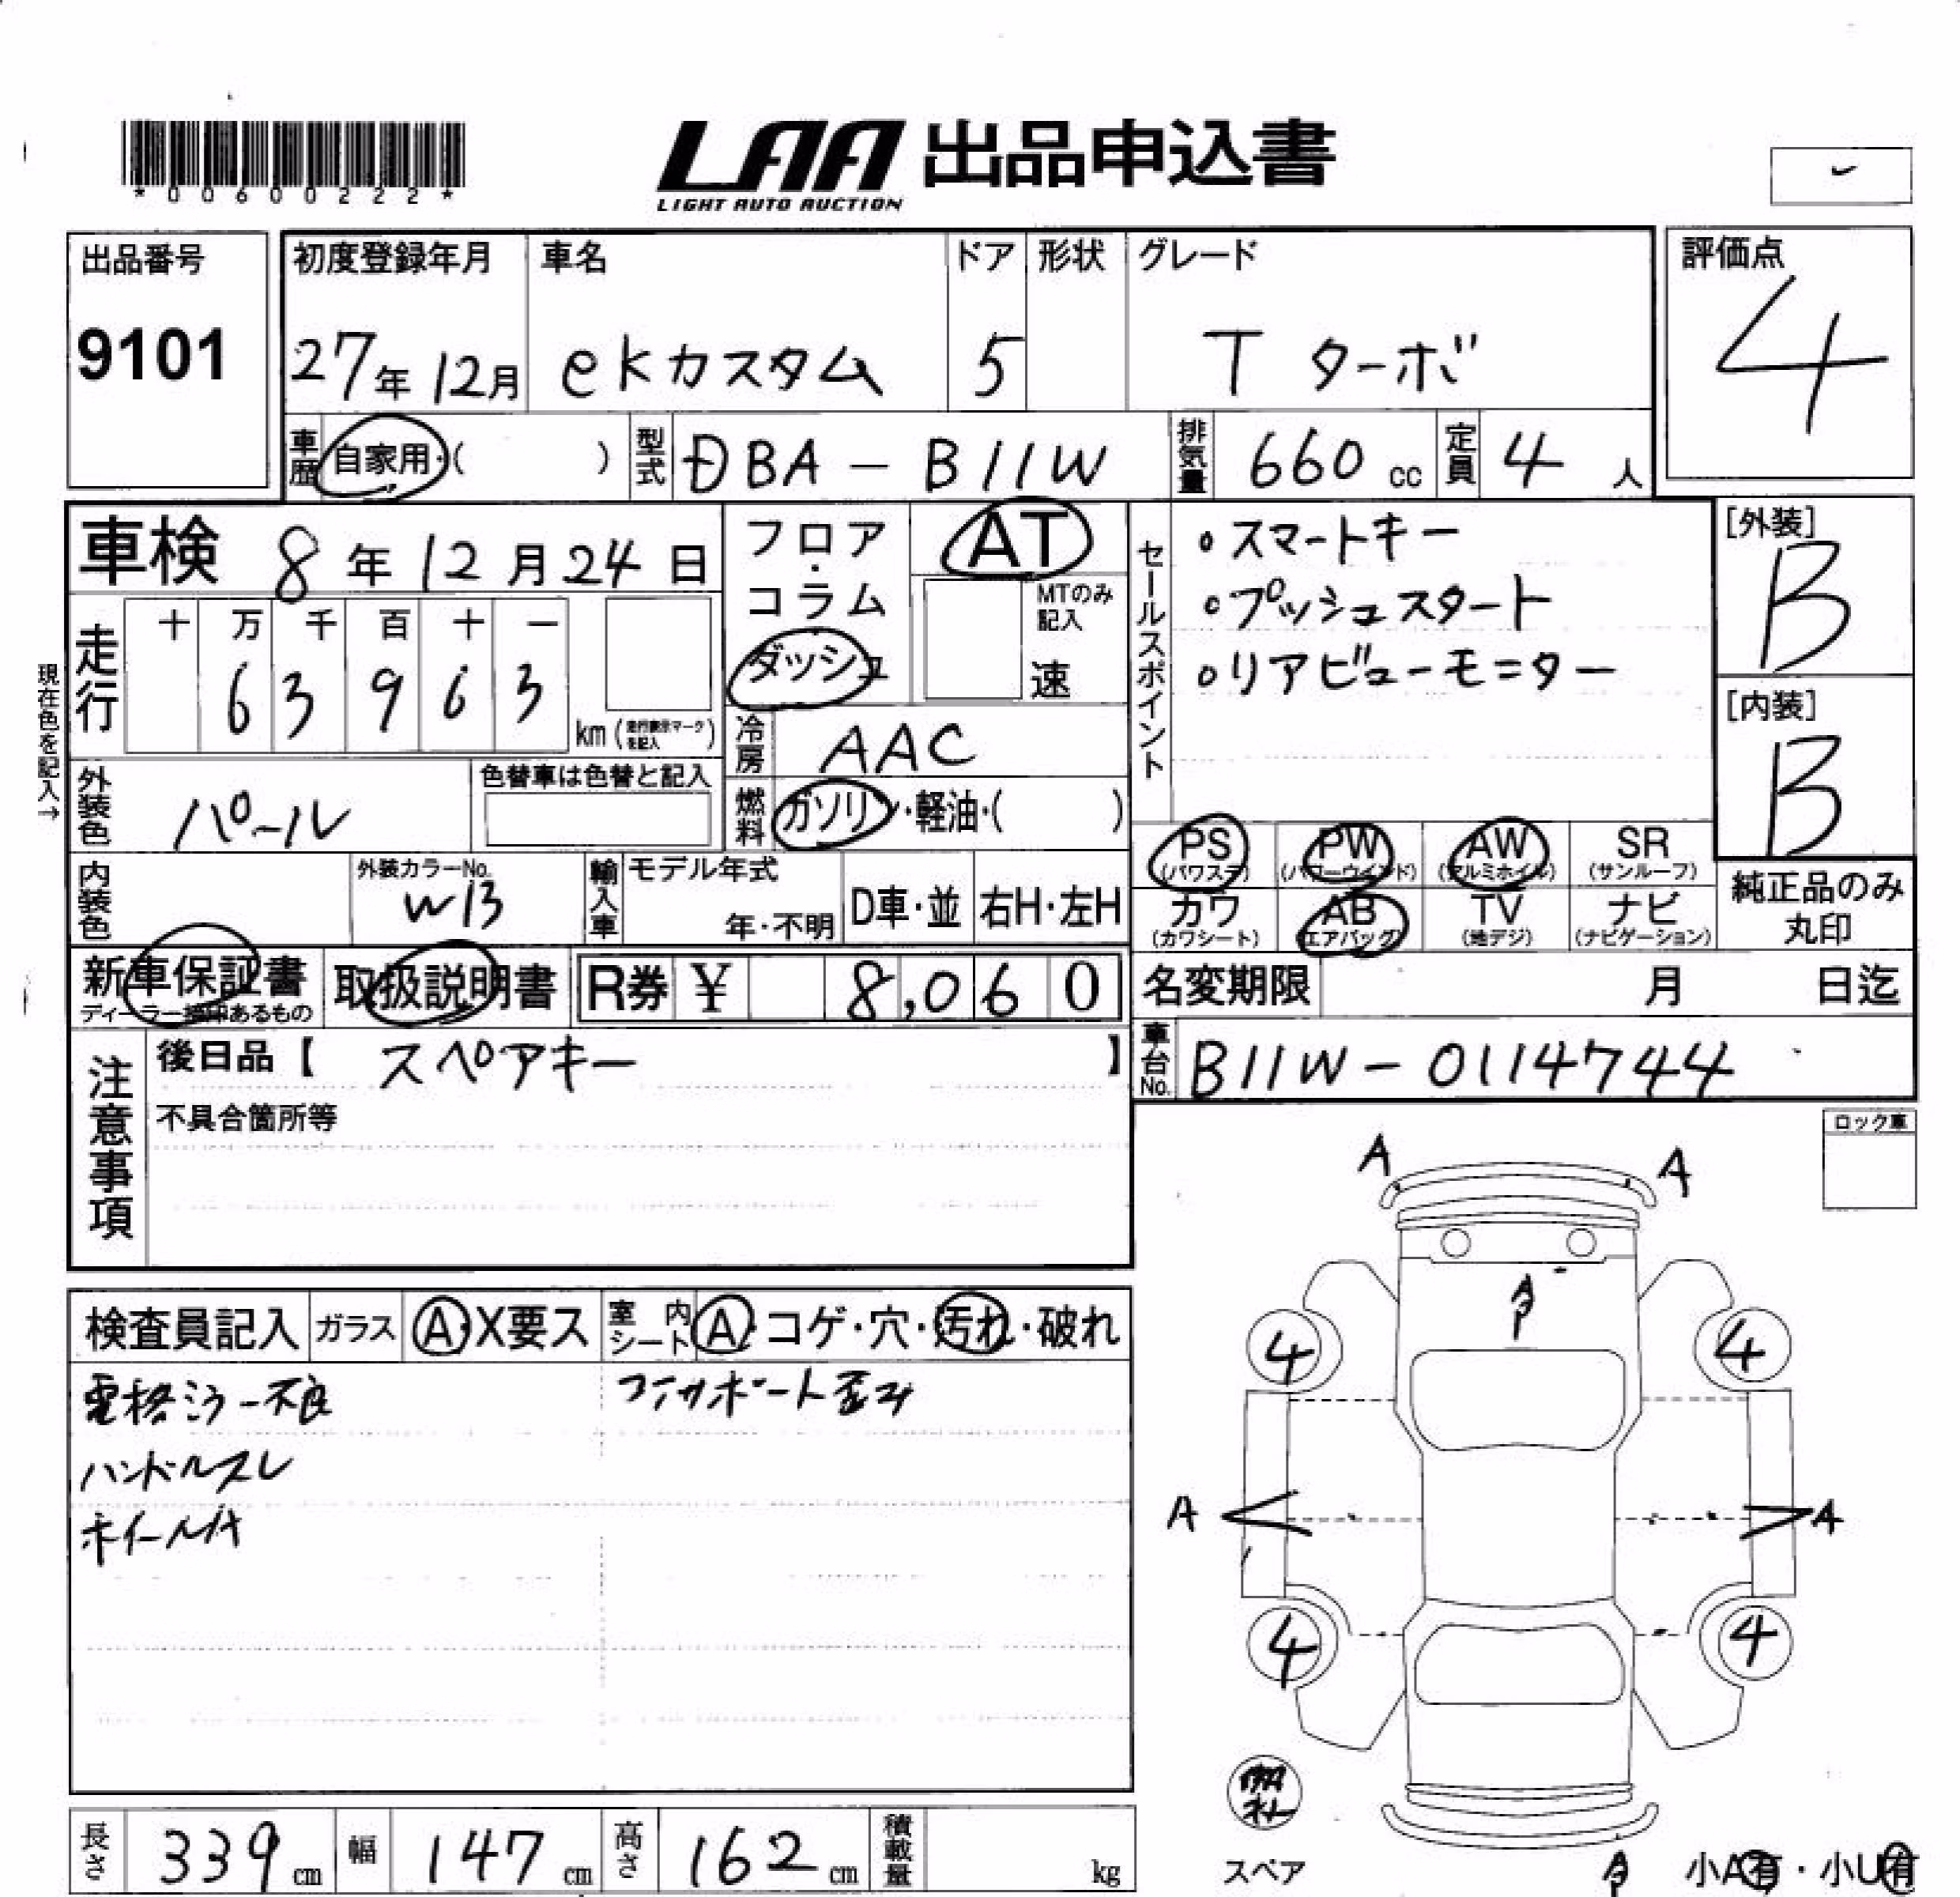 *00600222*
LAA 出品申込書
LIGHT AUTO AUCTION
出品番号
9101
初度登録年月
27年12月
車名
ekカスタム
ドア
5
形状
グレード
T ターボ
評価点
4
車歴 自家用・( )
型式 DBA-B11W
排気量 660 cc
定員 4 人
車検 8年12月24日
フロア・コラム
ダッシュ
AT
MTのみ記入
速
セールスポイント
○スマートキー
○プッシュスタート
○リアビューモニター
[外装]
B
[内装]
B
現在色を記入→
走行
十 万 千 百 十 一
6 3 9 6 3
km(走行表示マークを記入)
冷房 AAC
外装色 パール
色替車は色替と記入
燃料 ガソリン・軽油・( )
PS (パワステ)
PW (パワーウインド)
AW (アルミホイル)
SR (サンルーフ)
カワ (カワシート)
AB (エアバッグ)
TV (地デジ)
ナビ (ナビゲーション)
純正品のみ丸印
内装色
外装カラーNo.
W13
輸入車
モデル年式
年・不明
D車・並
右H・左H
新車保証書
ディーラー捺印あるもの
取扱説明書
R券 ¥ 8,060
名変期限 月 日迄
注意事項
後日品【 スペアキー 】
不具合箇所等
車台No. B11W-0114744
ロック車
A A
検査員記入
ガラス A・X要ス
室内シート A・コゲ・穴・汚れ・破れ
電格ミラー不良
コアサポート歪み
ハンドルスレ
ホイールA
4 4
A A
4 4
スペア
小A有・小U有
長さ 339 cm
幅 147 cm
高さ 162 cm
積載量 kg